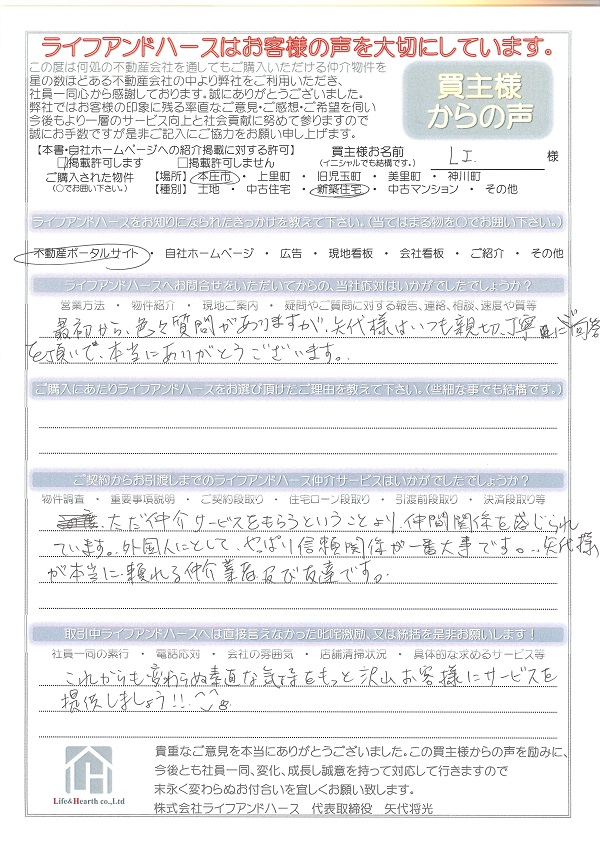 ライフアンドハースはお客様の声を大切にしています。
この度は何処の不動産会社を通してもご購入いただける仲介物件を
星の数ほどある不動産会社の中より弊社をご利用いただき、
社員一同心から感謝しております。誠にありがとうございました。
弊社ではお客様の印象に残る率直なご意見・ご感想・ご希望を伺い
今後もより一層のサービス向上と社会貢献に努めて参りますので
誠にお手数ですが是非ご記入にご協力をお願い申し上げます。
買主様
からの声
【本書・自社ホームページへの紹介掲載に対する許可】
□掲載許可します □掲載許可しません
買主様お名前
(イニシャルでも結構です。)
L I. 様
ご購入された物件
(○でお囲い下さい。)
【場所】 本庄市 ・ 上里町 ・ 旧児玉町 ・ 美里町 ・ 神川町
【種別】 土地 ・ 中古住宅 ・ 新築住宅 ・ 中古マンション ・ その他
ライフアンドハースをお知りになられたきっかけを教えて下さい。(当てはまる物を○でお囲い下さい。)
不動産ポータルサイト ・ 自社ホームページ ・ 広告 ・ 現地看板 ・ 会社看板 ・ ご紹介 ・ その他
ライフアンドハースへお問合せをいただいてからの、当社応対はいかがでしたでしょうか?
営業方法 ・ 物件紹介 ・ 現地ご案内 ・ 疑問やご質問に対する報告、連絡、相談、速度や質等
最初から、色々質問がありますが、矢代様はいつも親切、丁寧に回答
を頂いて、本当にありがとうございます。
ご購入にあたりライフアンドハースをお選び頂けたご理由を教えて下さい。(些細な事でも結構です。)
ご契約からお引渡しまでのライフアンドハース仲介サービスはいかがでしたでしょうか?
物件調査 ・ 重要事項説明 ・ ご契約段取り ・ 住宅ローン段取り ・ 引渡前段取り ・ 決済段取り等
ただ仲介サービスをもらうということより、仲間関係を感じられ
ています。外国人にとして、やっぱり信頼関係が一番大事です。矢代様
が本当に頼れる仲介業者及び友達です。
取引中ライフアンドハースへは直接言えなかった叱咤激励、又は統括を是非お願いします!
社員一同の素行 ・ 電話応対 ・ 会社の雰囲気 ・ 店舗清掃状況 ・ 具体的な求めるサービス等
これからも変わらぬ素直な気持をもっと沢山お客様にサービスを
提供しましょう!!
Life&Hearth co.,Ltd
貴重なご意見を本当にありがとうございました。この買主様からの声を励みに、
今後とも社員一同、変化、成長し誠意を持って対応して行きますので
末永く変わらぬお付合いを宜しくお願い致します。
株式会社ライフアンドハース 代表取締役 矢代将光